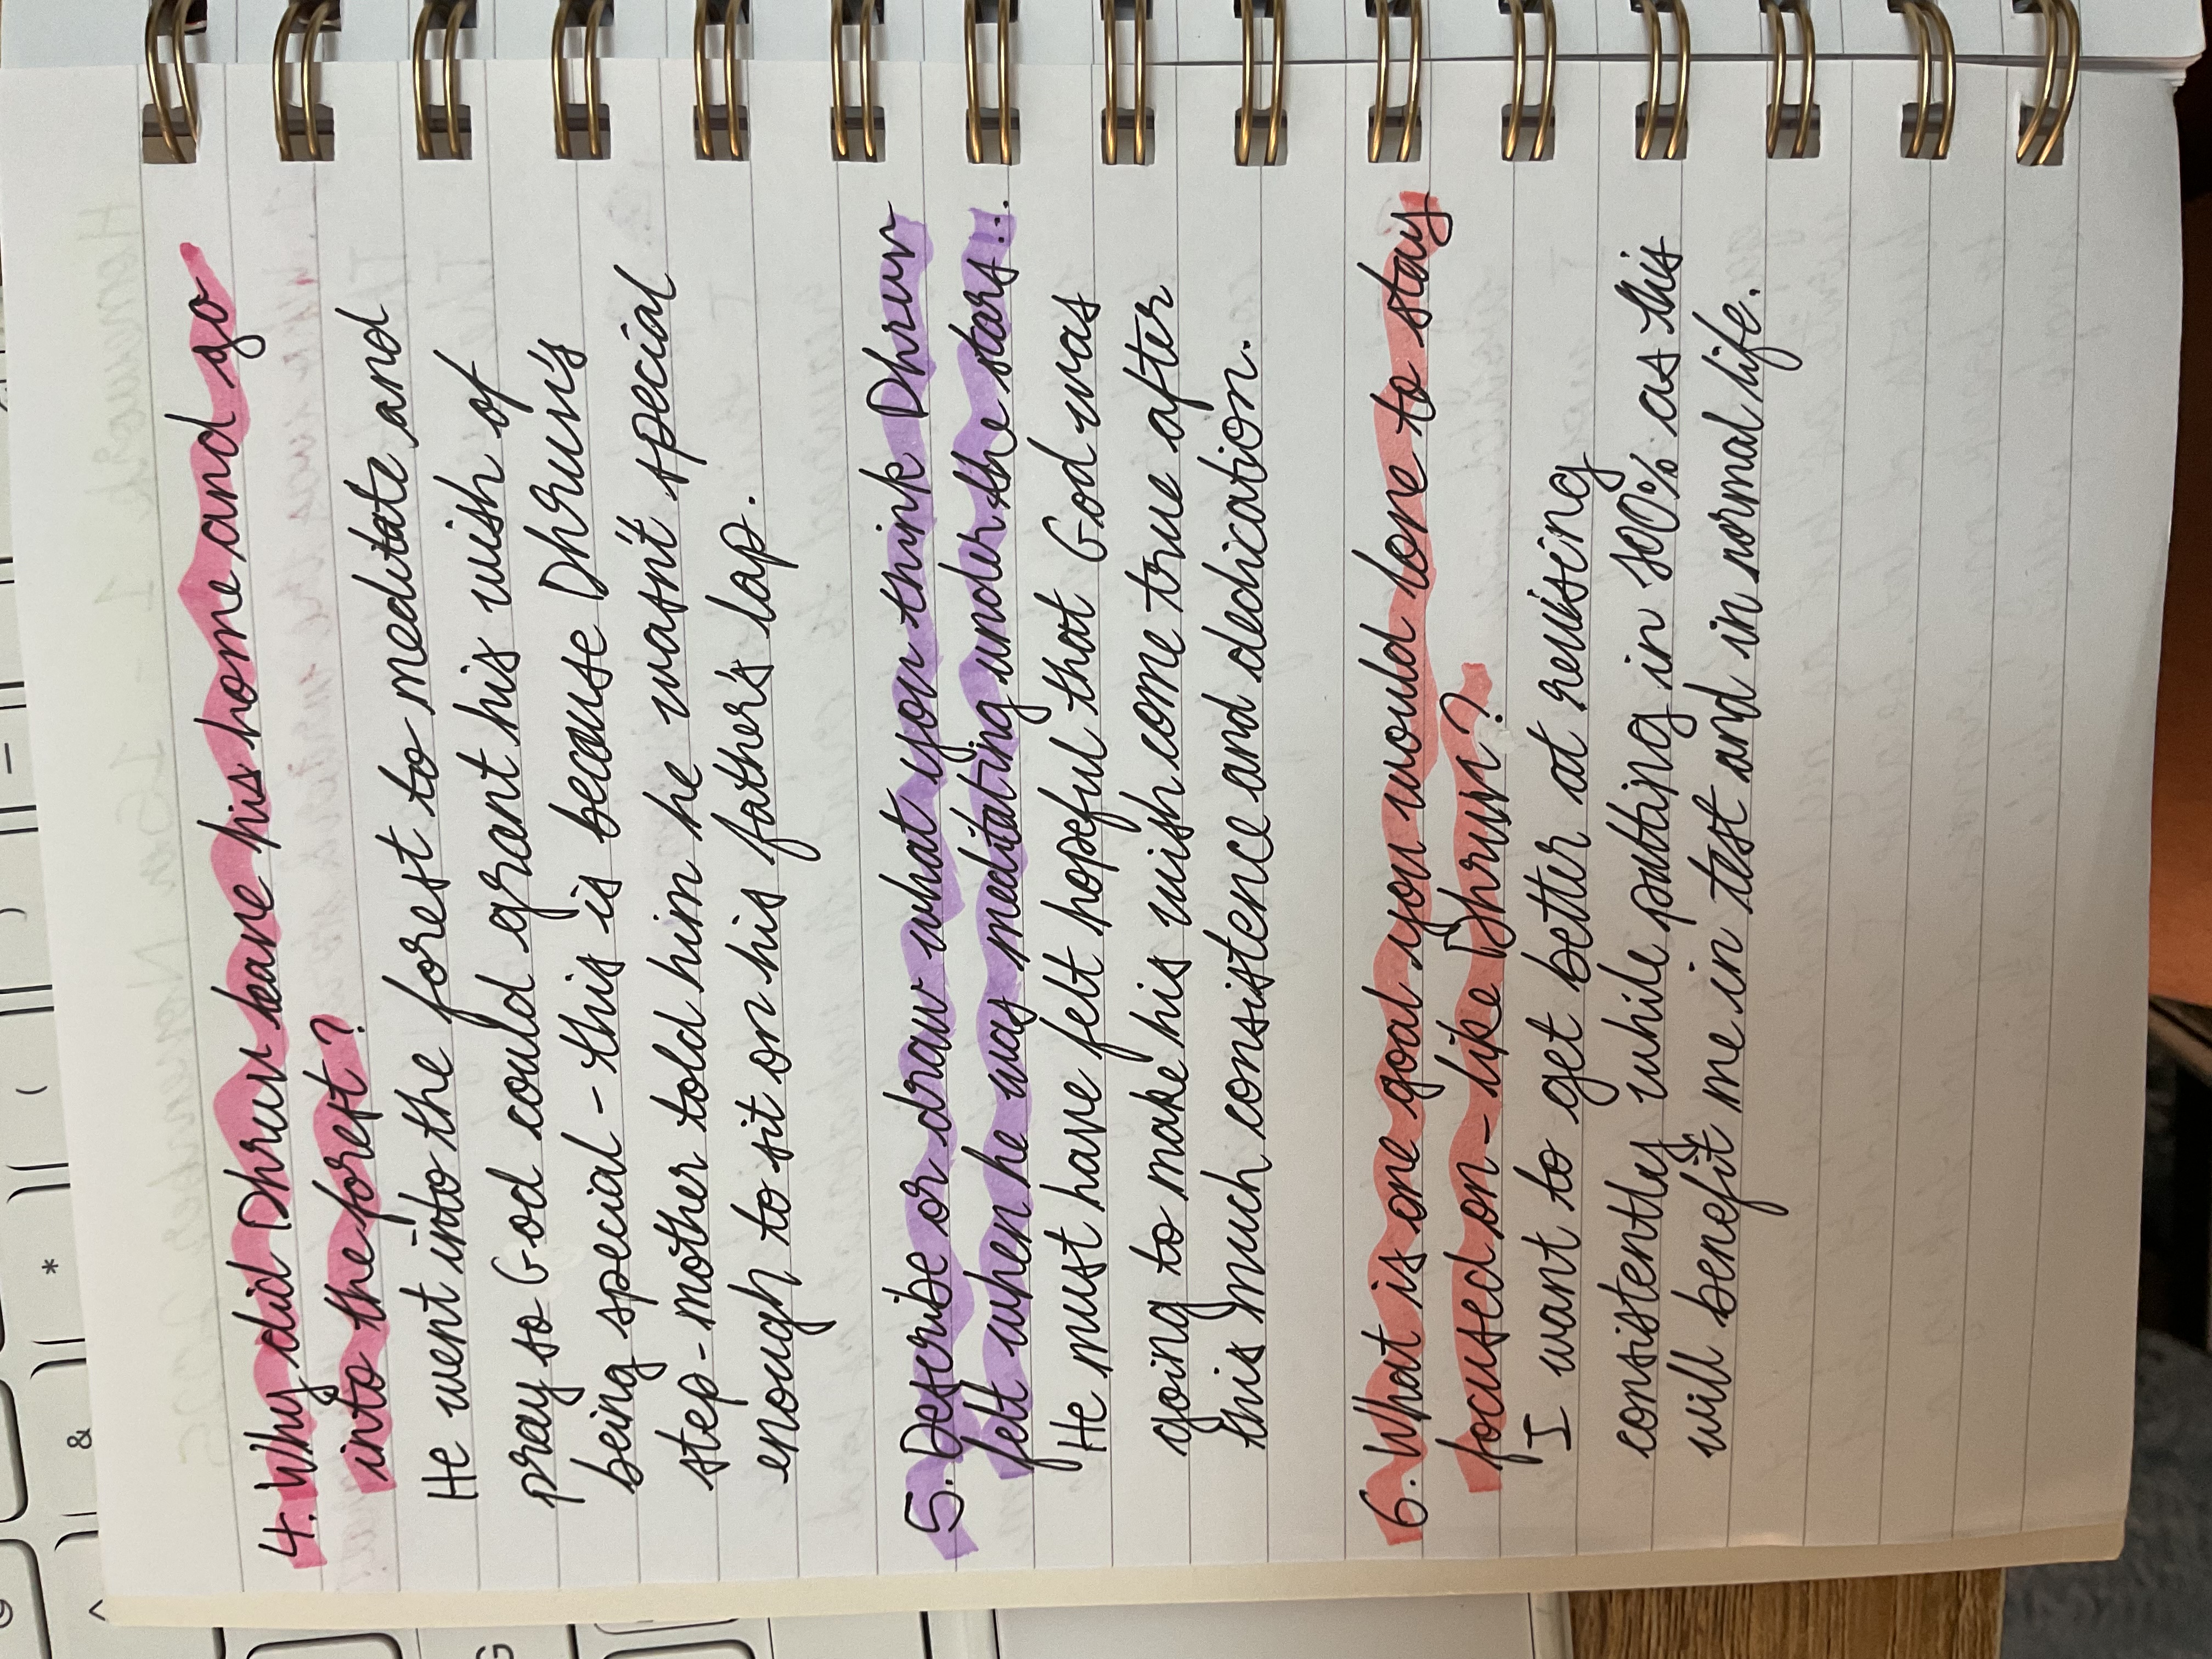 4. Why did Dhruv leave his home and go
into the forest?
He went into the forest to meditate and
pray so God could grant his wish of
being special - this is because Dhruv's
step-mother told him he wasn't special
enough to sit on his father's lap.
5. Describe or draw what you think Dhruv
felt when he was meditating under the stars...
He must have felt hopeful that God was
going to make his wish come true after
this much consistence and dedication.
6. What is one goal you would love to stay
focused on - like Dhruv?
I want to get better at revising
consistently while putting in 100% as this
will benefit me in test and in normal life.